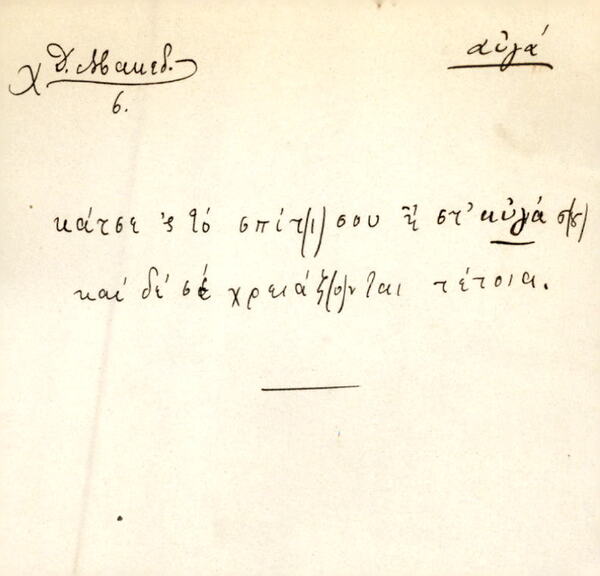 χ Δ. Μακεδ.
6.
αὐγά
κάτσε 'ς τό σπίτ(ι) σου κ̀ στ' αὐγά σ(ου)
καί δέ σέ χρειάζ(ο)νται τέτοια.